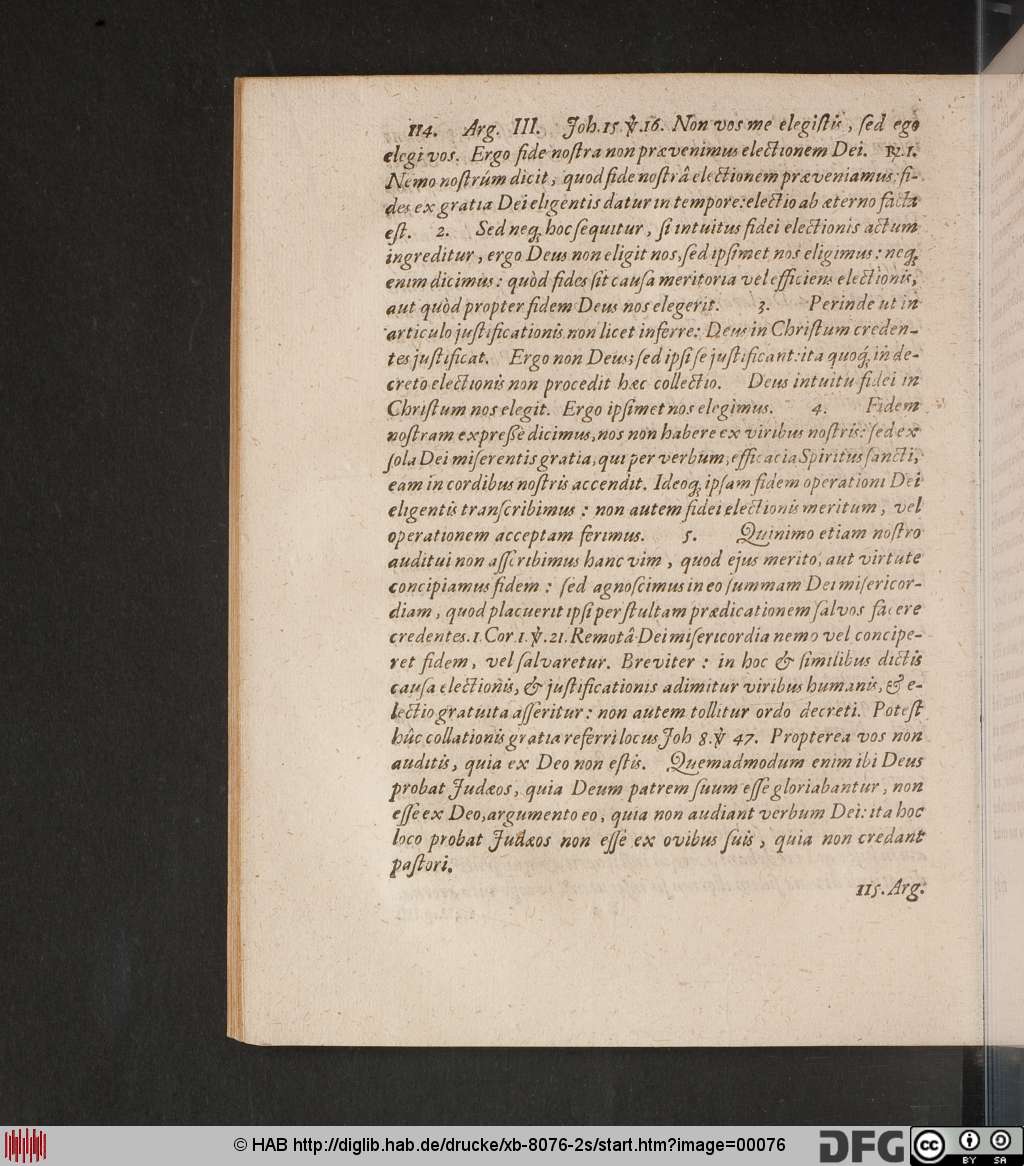 114. Arg. III. Joh. 15. ꝟ. 16. Non vos me elegiſtis, ſed ego
elegi vos. Ergo fide noſtra non prævenimus electionem Dei. ℞. 1.
Nemo noſtrûm dicit, quod fide noſtrâ electionem præveniamus: fi-
des ex gratia Dei eligentis datur in tempore: electio ab æterno facta
eſt. 2. Sed neq; hoc ſequitur, ſi intuitus fidei electionis actum
ingreditur, ergo Deus non eligit nos, ſed ipſimet nos eligimus: neq;
enim dicimus: quòd fides ſit cauſa meritoria vel efficiens electionis,
aut quòd propter fidem Deus nos elegerit. 3. Perinde ut in
articulo juſtificationis non licet inferre: Deus in Chriſtum creden-
tes juſtificat. Ergo non Deus; ſed ipſi ſe juſtificant: ita quoq; in de-
creto electionis non procedit hæc collectio. Deus intuitu fidei in
Chriſtum nos elegit. Ergo ipſimet nos elegimus. 4. Fidem
noſtram expreßè dicimus, nos non habere ex viribus noſtris: ſed ex
ſola Dei miſerentis gratia, qui per verbum, efficacia Spiritus ſancti,
eam in cordibus noſtris accendit. Ideoq; ipſam fidem operationi Dei
eligentis tranſcribimus: non autem fidei electionis meritum, vel
operationem acceptam ferimus. 5. Quinimo etiam noſtro
auditui non aſſcribimus hanc vim, quod ejus merito, aut virtute
concipiamus fidem: ſed agnoſcimus in eo ſummam Dei miſericor-
diam, quod placuerit ipſi per ſtultam prædicationem ſalvos facere
credentes. 1. Cor. 1. ꝟ. 21. Remotâ Dei miſericordia nemo vel concipe-
ret fidem, vel ſalvaretur. Breviter: in hoc & ſimilibus dictis
cauſa electionis, & juſtificationis adimitur viribus humanis, & e-
lectio gratuita aſſeritur: non autem tollitur ordo decreti. Poteſt
hûc collationis gratia referri locus Joh 8. ꝟ 47. Propterea vos non
auditis, quia ex Deo non eſtis. Quemadmodum enim ibi Deus
probat Judæos, quia Deum patrem ſuum eſſe gloriabantur, non
eſſe ex Deo, argumento eo, quia non audiant verbum Dei: ita hoc
loco probat Judæos non eſſe ex ovibus ſuis, quia non credant
paſtori.
115. Arg.
© HAB http://diglib.hab.de/drucke/xb-8076-2s/start.htm?image=00076
DFG
cc BY SA